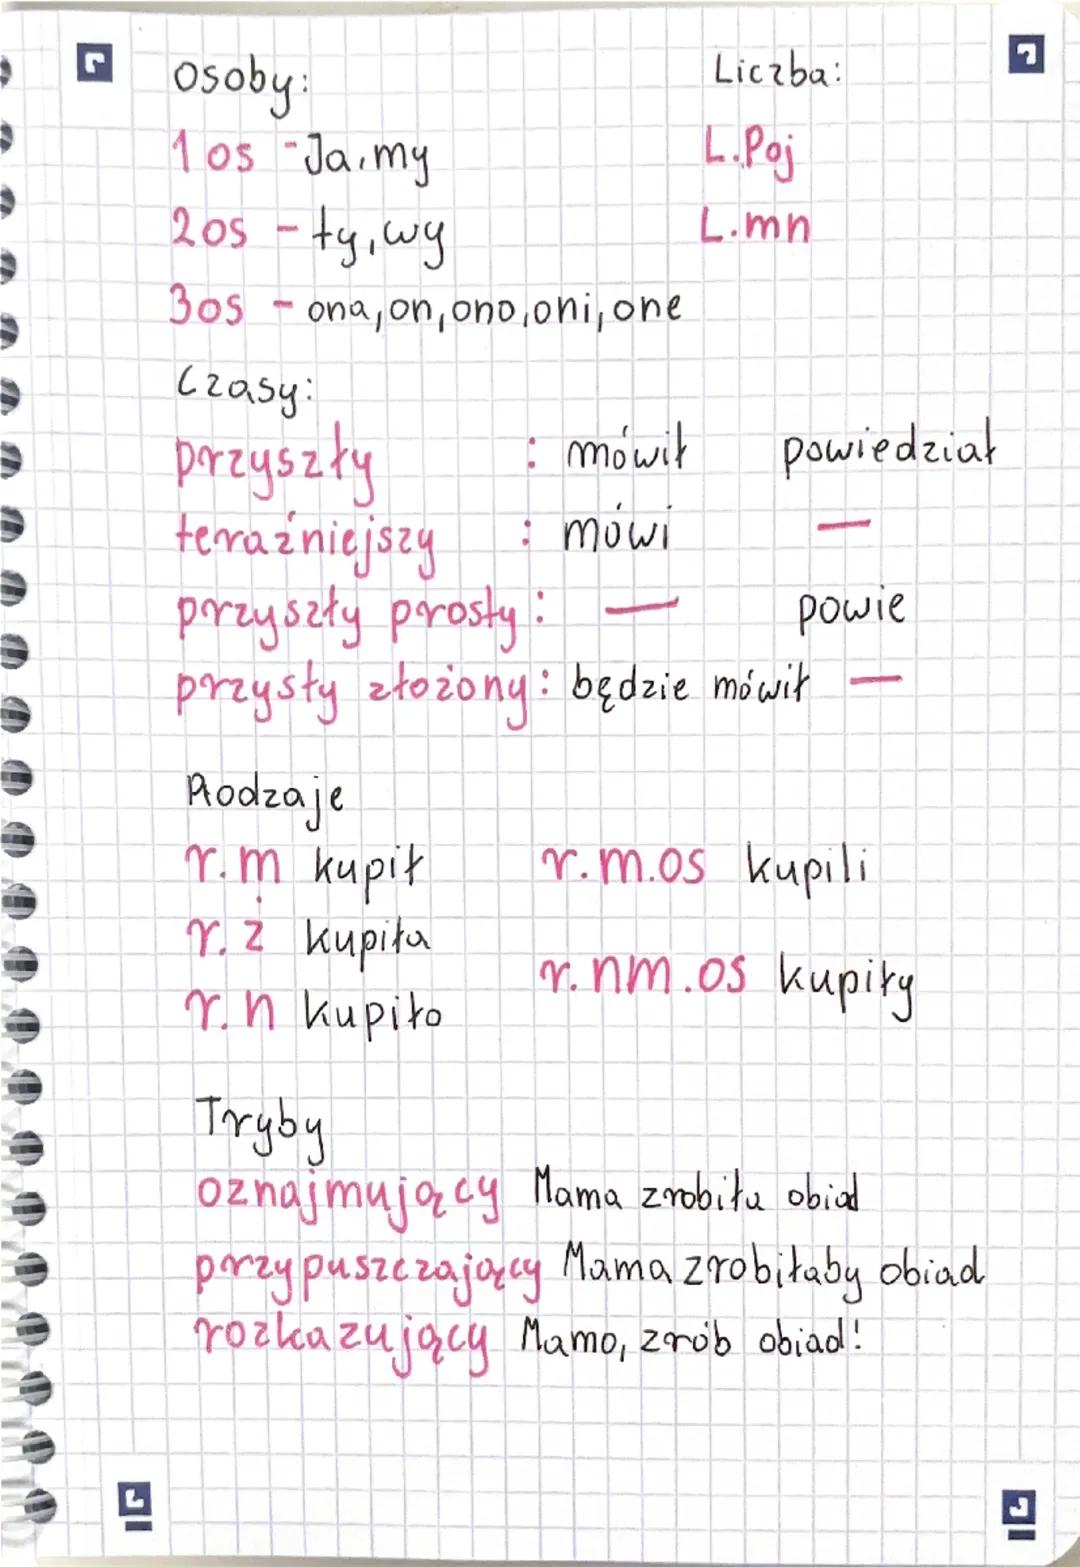 Osoby: Liczba:
1 os - Ja, my L.Poj
2os - ty, wy L.mn
3os - ona, on, ono, oni, one
Czasy:
przyszły : mówił powiedział
teraźniejszy : mówi —
przyszły prosty : — powie
przysły złożony : będzie mówił —
Rodzaje
r.m kupił r.m.os kupili
r.ż kupiła
r.nm.os kupiły
r.n kupiło
Tryby
oznajmujący Mama zrobiła obiad
przypuszczający Mama zrobiłaby obiad
rozkazujący Mamo, zrób obiad!